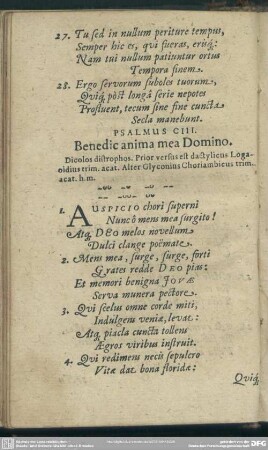 27. Tu sed in nullum periture tempus,
Semper hic es, qvi fueras, erisq́;
Nam tui nullum patiuntur ortus
Tempora finem.
28. Ergo servorum suboles tuorum,
Qviq́; pòst longâ serie nepotes
Profluent, tecum sine fine cuncta
Secla manebunt.
PSALMUS CIII.
Benedic anima mea Domino.
Dicolos distrophos. Prior versus est dactylicus Loga-
oidius trim. acat. Alter Glyconius Choriambicus trim.
acat. h.m.
1. AUSPICIO chori superni
Nunc ô mens mea surgito!
Atq́; DEO melos novellum
Dulci clange poëmate.
2. Mens mea, surge, surge, forti
Grates redde DEO pias:
Et memori benigna JOVÆ
Serva munera pectore.
3. Qvi scelus omne corde miti,
Indulgens veniæ, levat:
Atq́; piacla cuncta tollens
Ægros viribus instruit.
4. Qvi redimens necis sepulcro
Vitæ dat bona floridæ:
Qviq́;